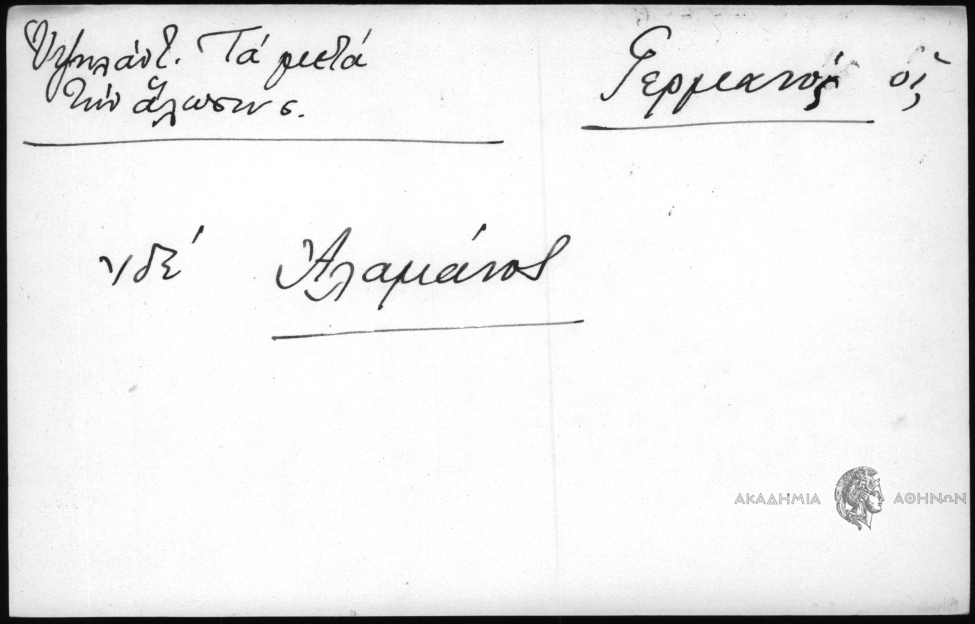 Ὑψηλάντ. Τά μετά
τήν ἅλωσιν ς.
Γερμανός ὁ
ἰδέ Ἀλαμάνος
ΑΚΑΔΗΜΙΑ ΑΘΗΝΩΝ